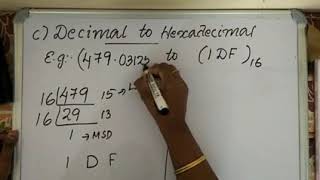 c) Decimal to Hexadecimal
E.g:- (479.03125 to (1DF)16
16 479 15 →
16 29 13
1 → MSD
1 D F